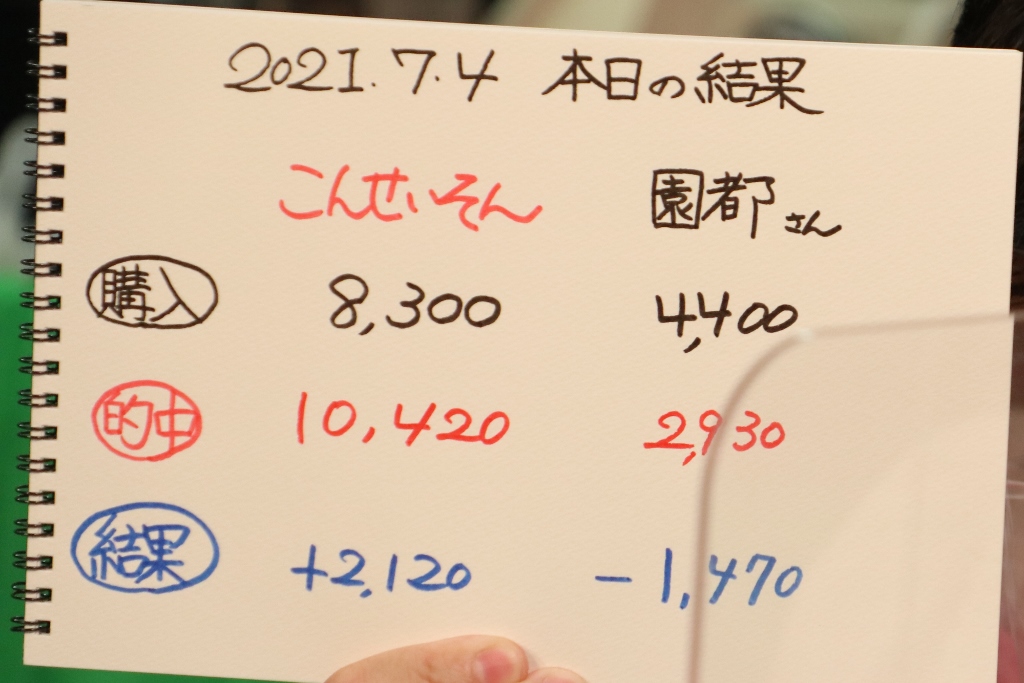 2021.7.4 本日の結果
こんせいそん 園都さん
購入 8,300 4,400
的中 10,420 2,930
結果 +2,120 -1,470